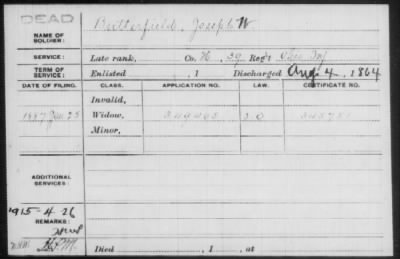 DEAD
NAME OF SOLDIER: Butterfield, Joseph W.
SERVICE: Late rank, Co. H, 59 Reg't Ohio Inf
TERM OF SERVICE: Enlisted , 1 Discharged Aug. 4, 1864
DATE OF FILING. CLASS. APPLICATION NO. LAW. CERTIFICATE NO.
Invalid,
1887 Jan 25 Widow,
Minor,
ADDITIONAL SERVICES:
1915-4-26
REMARKS:
Died , 1 , at